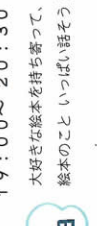 19：00～20：30
大好きな絵本を持ち寄って、
絵本のこと いっぱい話そう